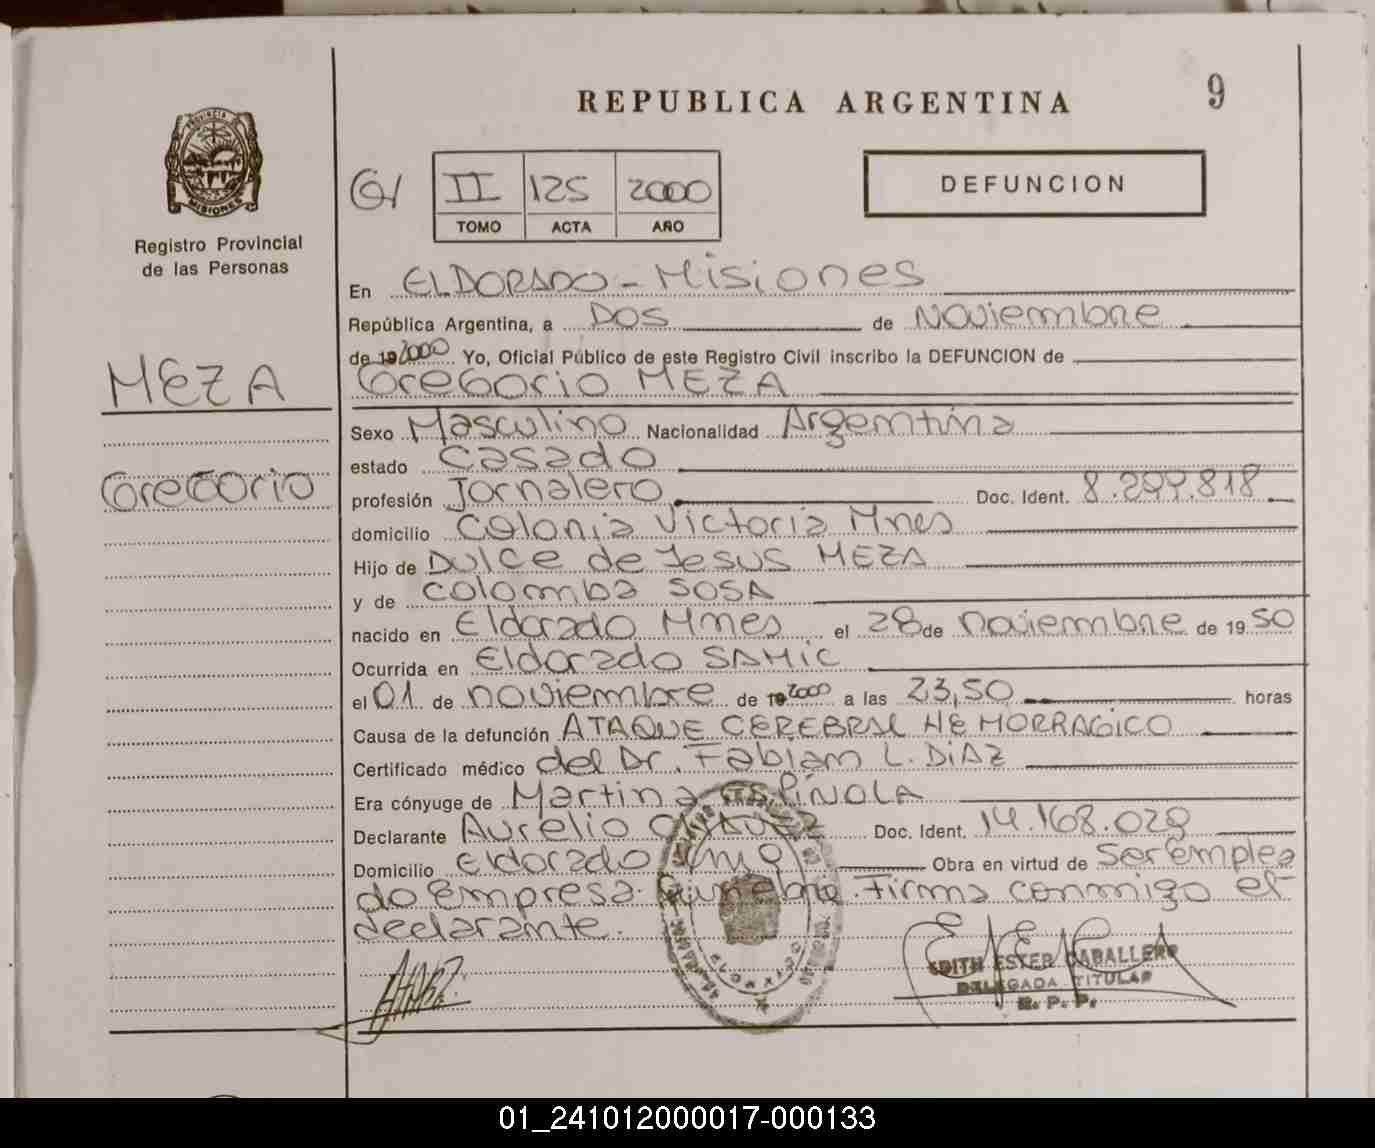 REPUBLICA ARGENTINA
9
PROVINCIA DE
MISIONES
Registro Provincial
de las Personas
II 125 2000
TOMO ACTA AÑO
DEFUNCION
En ELDORADO - Misiones
República Argentina, a DOS de Noviembre
de 19 2000 Yo, Oficial Público de este Registro Civil inscribo la DEFUNCION de
Gregorio MEZA
MEZA
Gregorio
Sexo Masculino Nacionalidad Argentina
estado Casado
profesión Jornalero Doc. Ident. 8.299.818
domicilio Colonia Victoria Mnes
Hijo de Dulce de Jesus MEZA
y de Colomba SOSA
nacido en Eldorado Mnes el 28 de noviembre de 19 50
Ocurrida en Eldorado SAMIC
el 01 de noviembre de 19 2000 a las 23,50 horas
Causa de la defunción ATAQUE CEREBRAL HEMORRAGICO
Certificado médico del Dr. Fabian L. DiAZ
Era cónyuge de Martina ESPÍNOLA
Declarante Aurelio Doc. Ident. 14.168.029
Domicilio Eldorado Obra en virtud de ser emplea
do Empresa Funebre. Firma conmigo el
declarante.
EDITH ESTER CABALLERO
DELEGADA TITULAR
R. P. P.
01_241012000017-000133